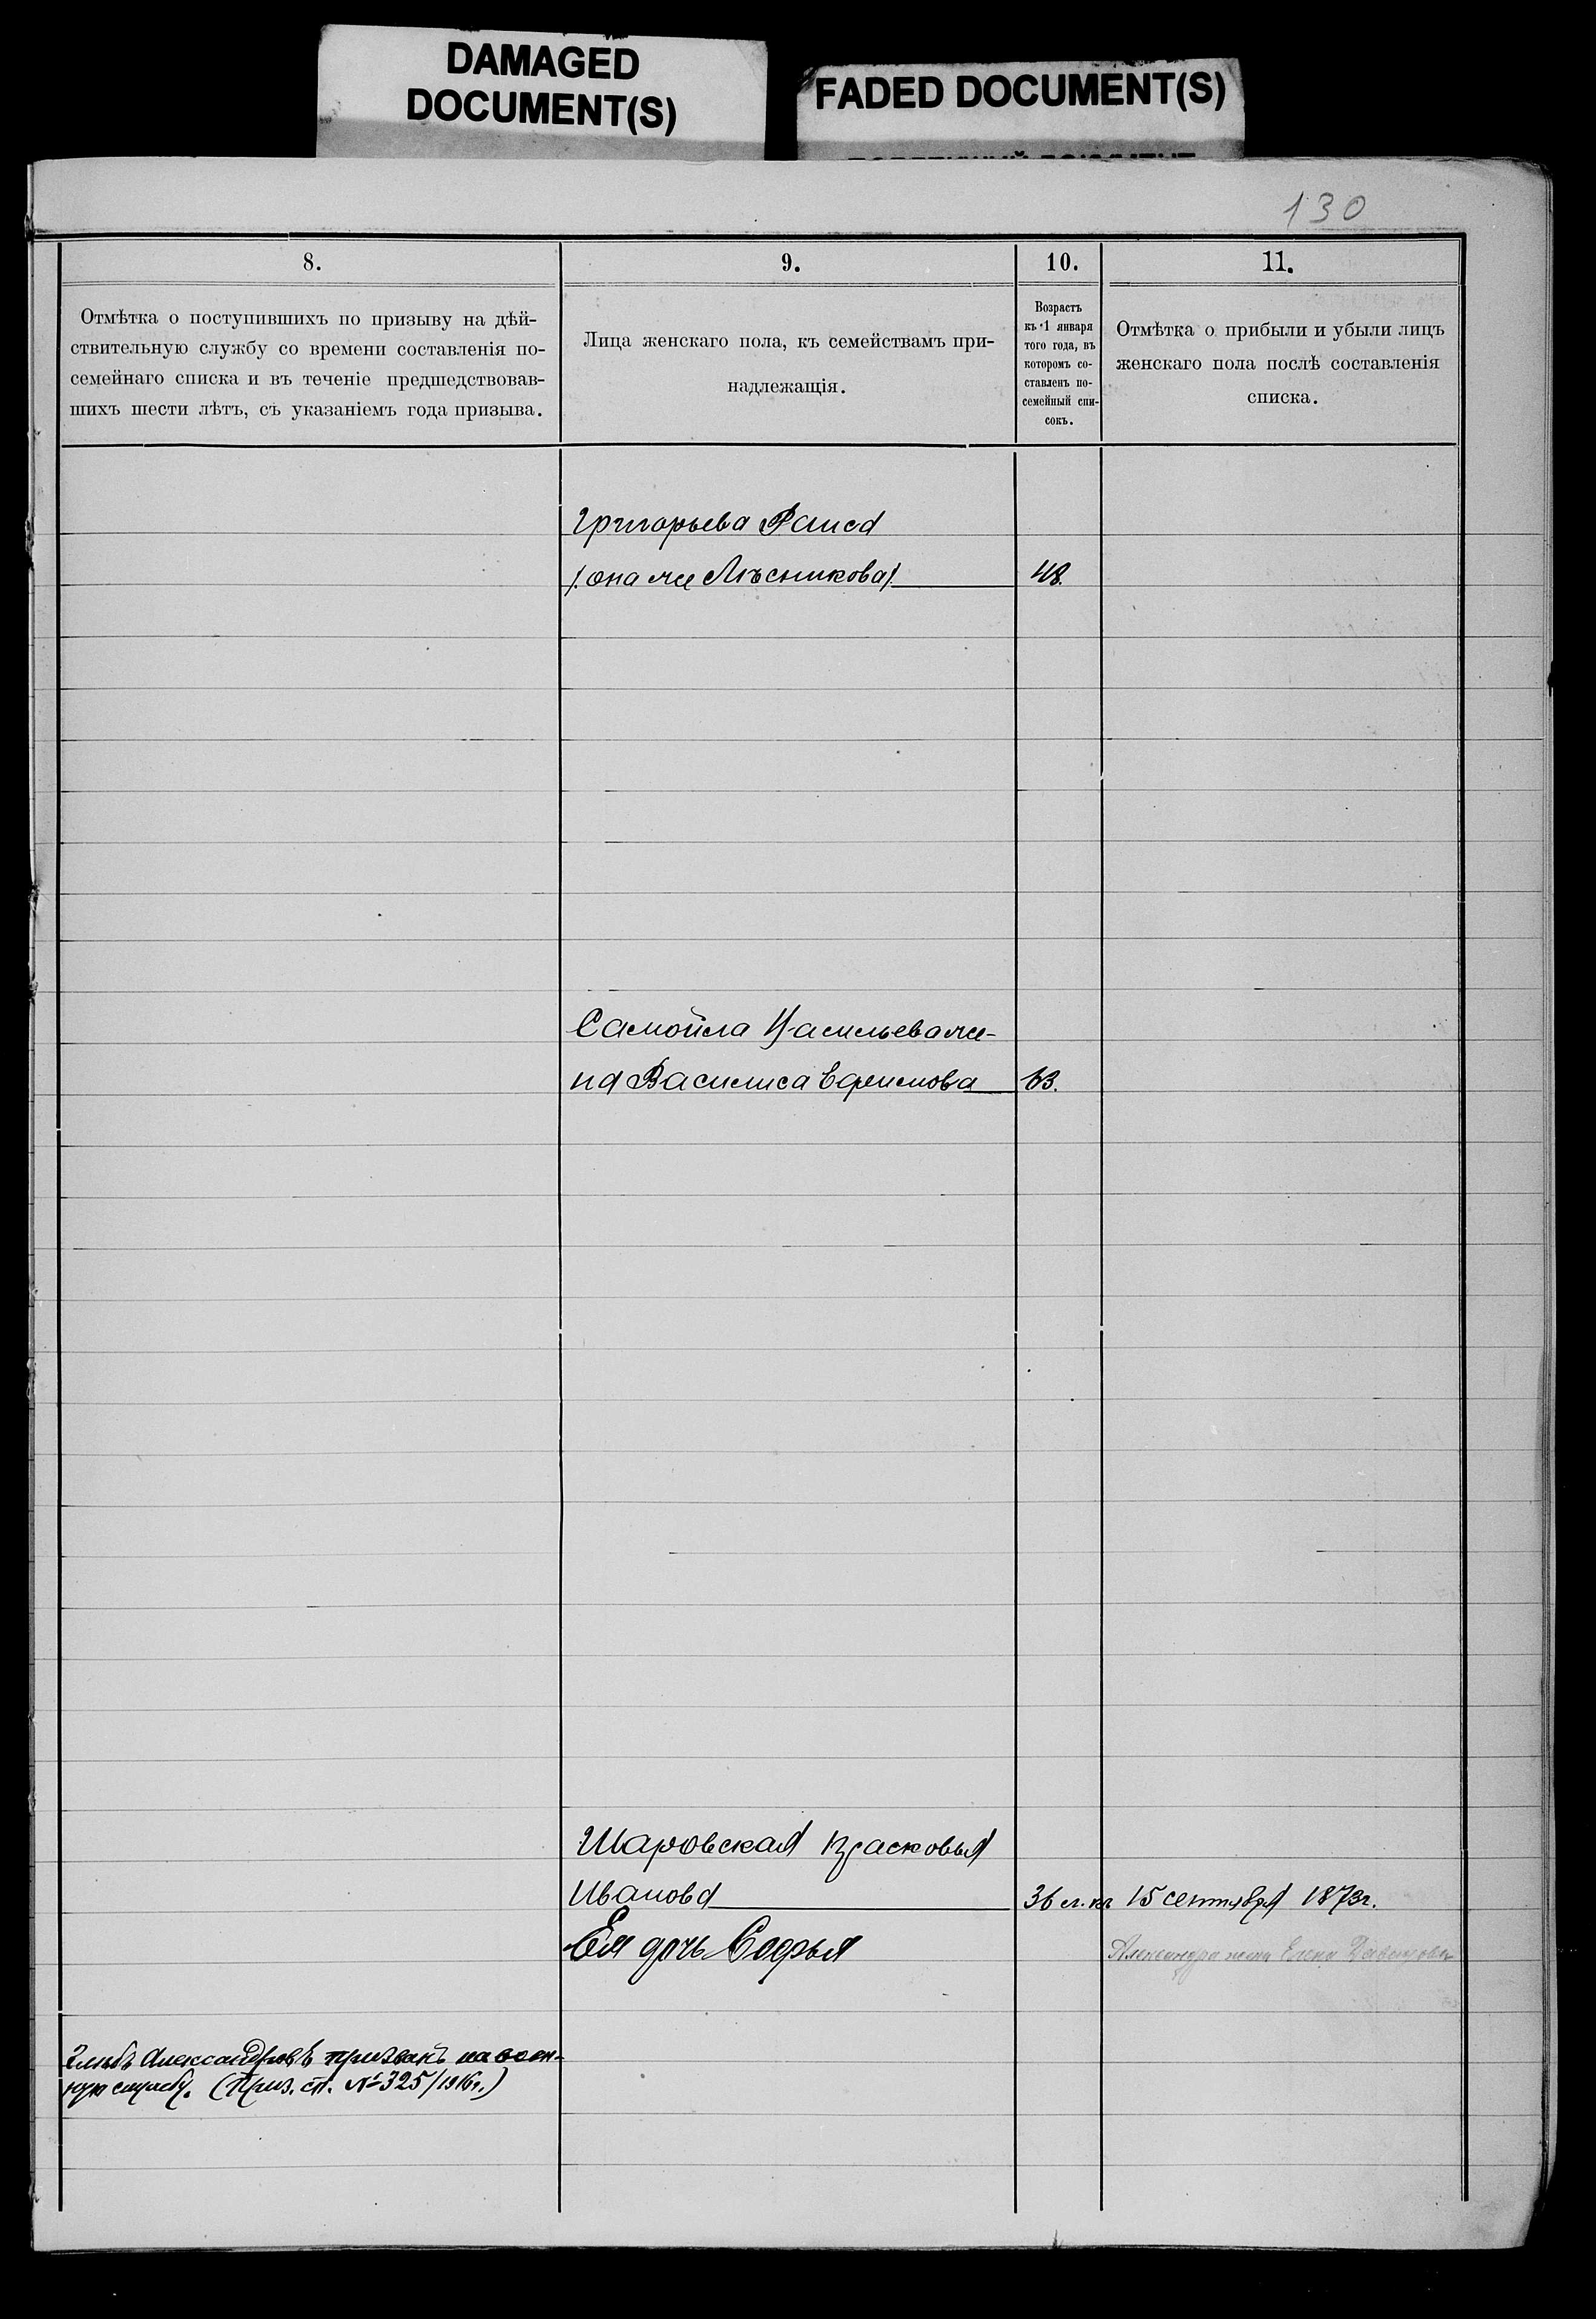 DAMAGED
DOCUMENT(S)
FADED DOCUMENT(S)
130
8.
Отмѣтка о поступившихъ по призыву на дѣй-
ствительную службу со времени составленія по-
семейнаго списка и въ теченіе предшедствовав-
шихъ шести лѣтъ, съ указаніемъ года призыва.
9.
Лица женскаго пола, къ семействамъ при-
надлежащія.
10.
Возрастъ
къ 1 января
того года, въ
которомъ со-
ставленъ по-
семейный спи-
сокъ.
11.
Отмѣтка о прибыли и убыли лицъ
женскаго пола послѣ составленія
списка.
Григорьева Раиса
(она же Лѣсникова) 48.
Самойла Васильева же-
на Василиса Ефимова 63.
Шаровская Прасковья
Иванова 36 л. къ 15 сентября 1873г.
Ея дочь Софья
Александра жена Елена
Глѣбъ Александровъ призванъ на воен-
ную службу. (Приз. сп. № 325/1916г.)